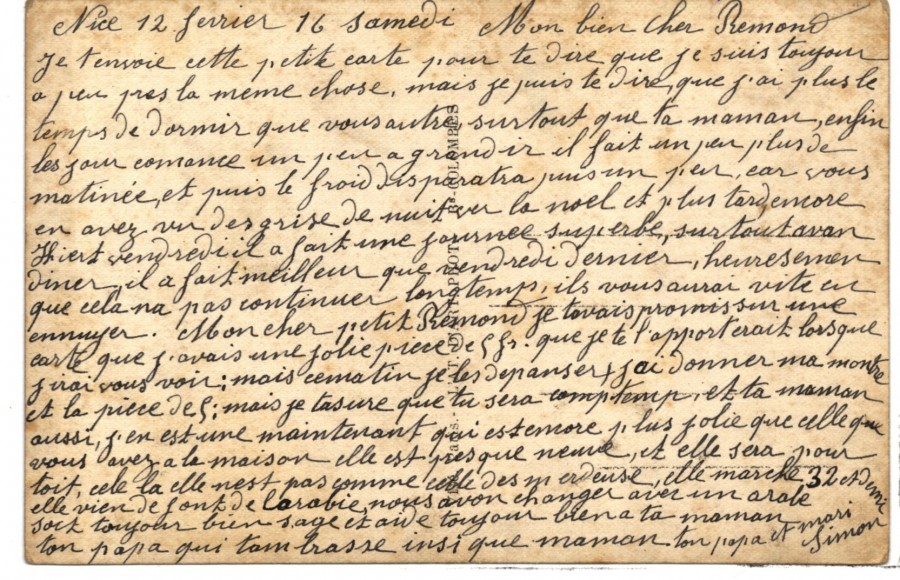 Nice 12 fevrier 16 samedi Mon bien cher Remond
Je t'envoie cette petite carte pour te dire que je suis toujour
a peu pres la meme chose, mais je puis te dire, que j'ai plus le
temps de dormir que vous autre, surtout que ta maman, enfin
les jour comance un peu a grandir il fait un peu plus de
matinée, et puis le froid disparatra puis un peu, car vous
en avez vu des grise de nuit ver la noel et plus tard emore
Hiert vendredi il a fait une journee superbe, surtout avan
diner, il a fait meilleur que vendredi dernier, heuresemen
que cela na pas continuer longtemps, ils vous aurai vite en
ennuyer. Mon cher petit Rémond je tavais promis sur une
carte que j'avais une jolie piece de 5 fr. que je te l'apporterait lorsque
j'irai vous voir; mais ce matin je les depanser, j'ai donner ma montre
et la piece de 5; mais je tasure que tu sera comptemp, et ta maman
aussi, j'en est une maintenant qui est emore plus jolie que celle que
vous avez a la maison elle est presque neuve, et elle sera pour
toit, cele la elle nest pas comme celle des merdeuse, elle marche, 32 et demie
elle vien de font de l'arabie, nous avon changer avec un arabe
soit toujour bien sage et aide toujour bien a ta maman
ton papa qui tambrasse insi que maman ton papa et mari
Simon